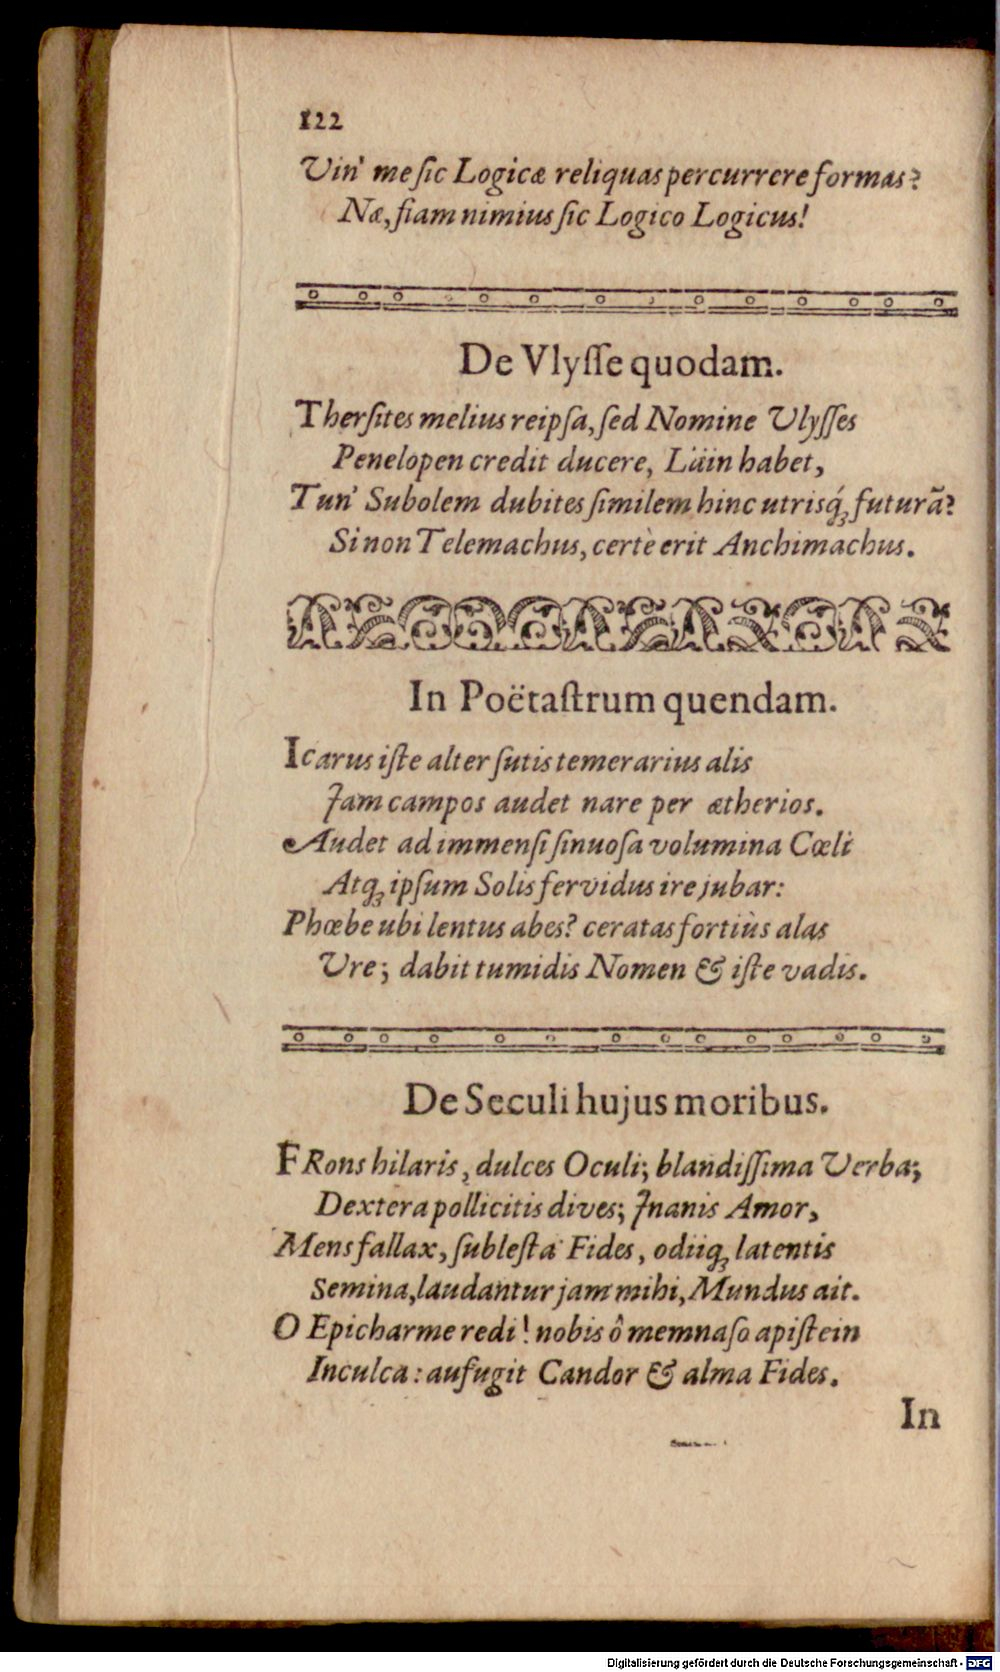 122
Uin' me ſic Logicæ reliquas percurrere formas?
Næ, fiam nimius ſic Logico Logicus!
De Vlyſſe quodam.
Therſites melius reipſa, ſed Nomine Ulyſſes
Penelopen credit ducere, Läin habet,
Tun' Subolem dubites ſimilem hinc utrisq́ꝫ futurã?
Si non Telemachus, certè erit Anchimachus.
In Poëtaſtrum quendam.
Icarus iſte alter ſutis temerarius alis
Jam campos audet nare per ætherios.
Audet ad immenſi ſinuoſa volumina Cœli
Atqꝫ ipſum Solis fervidus ire jubar:
Phœbe ubi lentus abes? ceratas fortiùs alas
Vre; dabit tumidis Nomen & iſte vadis.
De Seculi hujus moribus.
FRons hilaris, dulces Oculi; blandiſſima Verba;
Dextera pollicitis dives; Jnanis Amor,
Mens fallax, ſubleſta Fides, odiiqꝫ latentis
Semina, laudantur jam mihi, Mundus ait.
O Epicharme redi! nobis ô memnaſo apiſtein
Inculca: aufugit Candor & alma Fides.
In
Digitalisierung gefördert durch die Deutsche Forschungsgemeinschaft - DFG